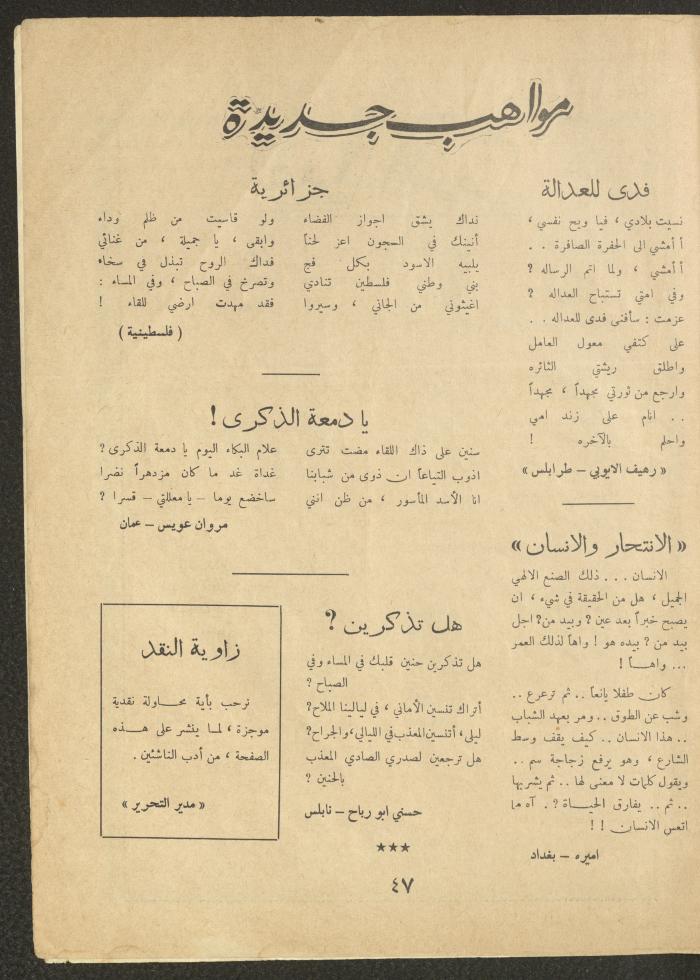 مواهب جديدة
فدى للعدالة
نسيت بلادي ، فيا ويح نفسي ،
أ أمشي الى الحفرة الصافرة . .
أ أمشي ، ولما اتم الرساله ؟
وفي امتي تستباح العداله ؟
عزمت : سأفنى فدى للعداله . .
على كتفي معول العامل
واطلق ريشتي الثائره
وارجع من ثورتي مجهداً ، مجهداً
. . انام على زند امي
واحلم بالآخره !
« رهيف الايوبي – طرابلس »
« الانتحار والانسان »
الانسان . . . ذلك الصنع الالهي
الجميل ، هل من الحقيقة في شيء ، ان
يصبح خبراً بعد عين ؟ وبيد من؟ اجل
بيد من ? بيده هو ! واهاً لذلك العمر
... واهـاً !
كان طفلا يانعاً .. ثم ترعرع ..
وشب عن الطوق .. ومر بعهد الشباب
.. هذا الانسان .. كيف يقف وسط
الشارع ، وهو يرفع زجاجة سم ..
ويقول كلمات لا معنى لها .. ثم يشربها
.. ثم .. يفارق الحيـاة ؟ . آه مما
اتعس الانسان ! !
اميره – بغداد
جزائرية
نداك يشق اجواز الفضاء ولو قاسيت من ظلم وداء
أنينك في السجون اعز لحناً وابقى ، يا جميلة ، من غنائي
يلبيه الاسود بكل فج فداك الروح تبذل في سخاء
بني وطني فلسطين تنادي وتصرخ في الصباح ، وفي المساء :
اغيثوني من الجاني ، وسيروا فقد مهدت ارضي للقاء !
( فلسطينية )
يا دمعة الذكرى !
سنين على ذاك اللقاء مضت تترى علام البكاء اليوم يا دمعة الذكرى ؟
اذوب التباعاً ان ذوى من شبابنا غداة غد ما كان مزدهراً نضرا
انا الأسد المأسور ، من ظن انني ساخضع يوما – يا معللتي – قسرا ؟
مروان عويس – عمان
هل تذكرين ؟
هل تذكرين حنين قلبك في المساء وفي
الصباح ?
أتراك تنسين الأماني ، في ليالينا الملاح؟
ليلى، أتنسين المعذب في الليالي، والجراح؟
هل ترجعين لصدري الصادي المعذب
بالحنين ?
حسني ابو رباح – نابلس
★★★
زاوية النقد
نرحب بأية محـاولة نقدية
موجزة ، لمـا ينشر على هـذه
الصفحة ، من أدب الناشئين .
« مدير التحرير »
٤٧